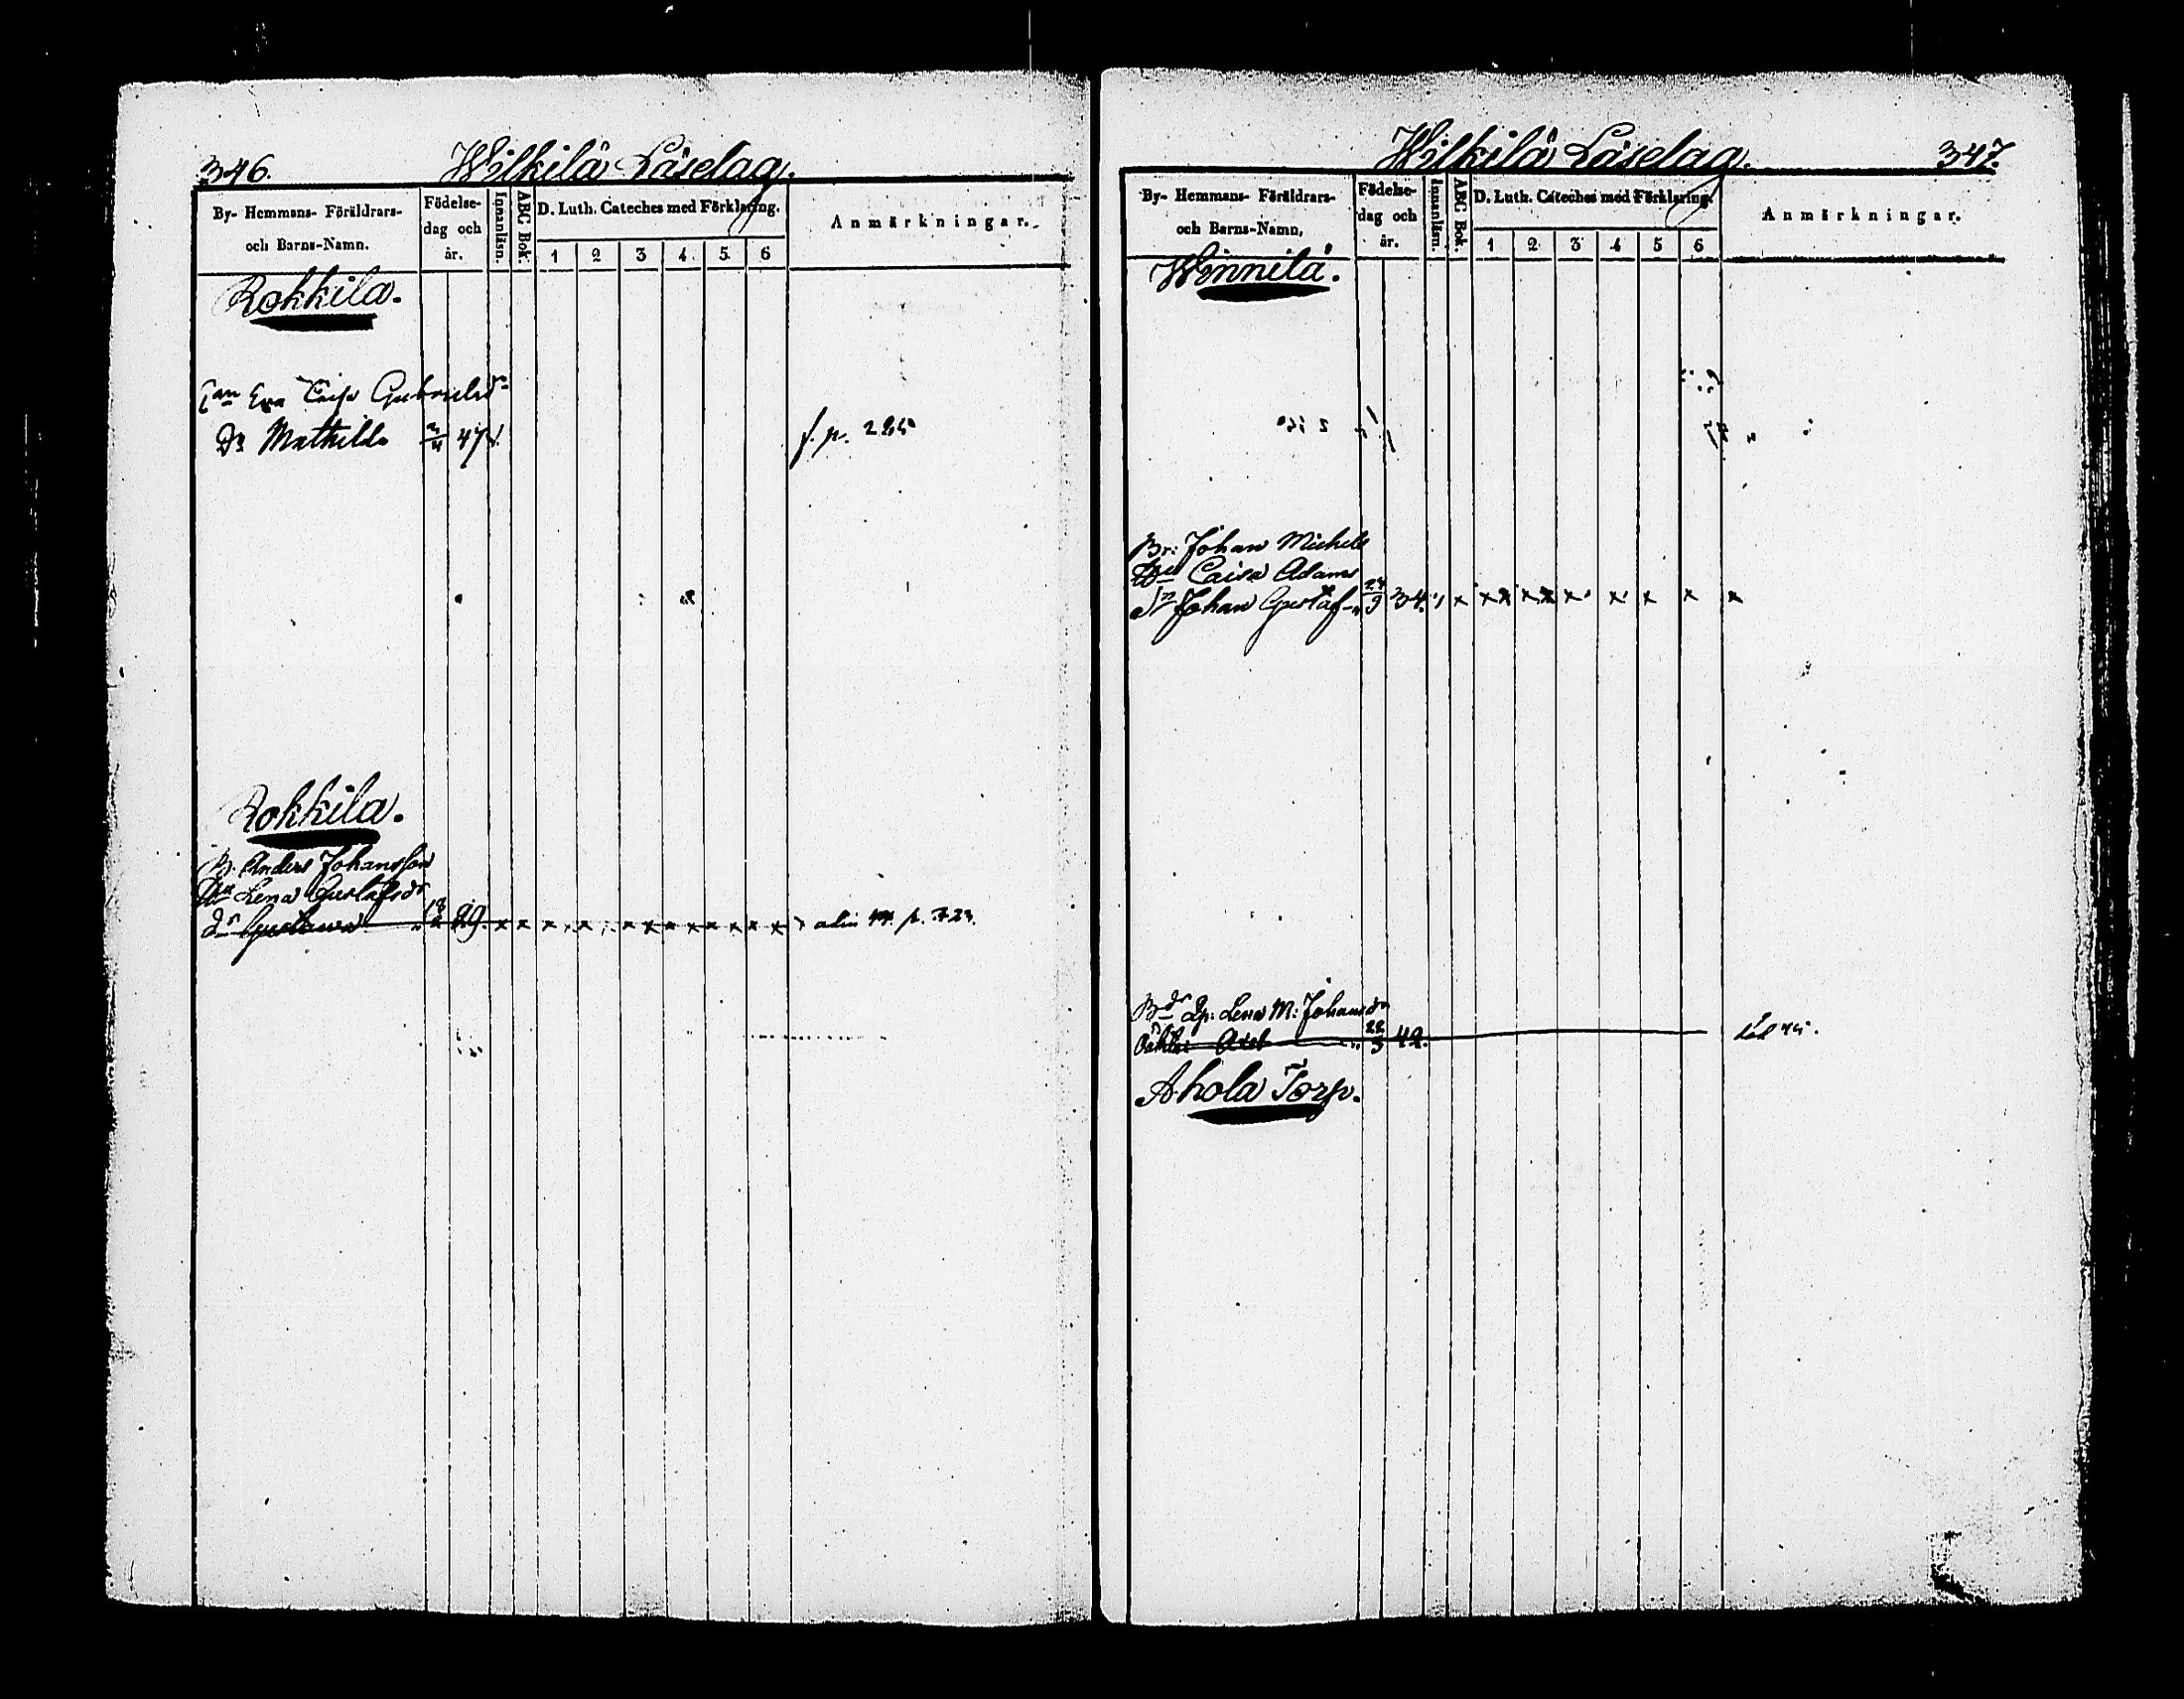 346.
Wilkilä Läselag.
By- Hemmans- Föräldrars- och Barns-Namn.
Födelse-dag och år.
Innanläsn.
ABC Bok.
D. Luth. Cateches med Förklaring.
1 2 3 4. 5. 6
Anmärkningar.
Rokkila.
Eva Caisa Gabrielsdr
Dr Mathilda 47 f. p.
Rokkila.
B. Anders Johansson
Hu Lena Gustafsdr
dr Gustava 29. x x x x x x x x x x x x p. 723.
347.
Wilkilä Läselag.
By- Hemmans- Föräldrars- och Barns-Namn,
Födelse-dag och år.
Innanläsn.
ABC Bok.
D. Luth. Cateches med Förklaring.
1 2 3 4 5 6
Anmärkningar.
Winnilä.
Br: Johan Michels
Hu Caisa Adams
Sn Johan Gustaf 24/9 34. x x x x x x x x x x x
Bdr Lena M: Johansdr
Oäkta Axel 28/3 42.
Ahola Torp.